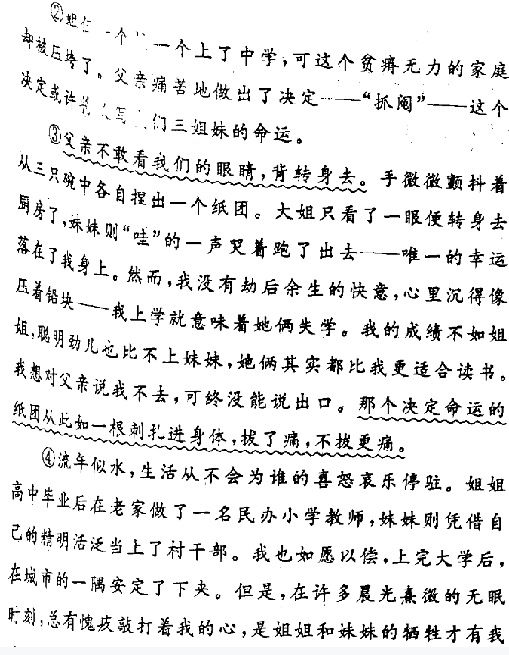 ②
一个上了中学,可这个贫瘠无力的家庭
却被压垮了。父亲痛苦地做出了决定——“抓阄”——这个
决定或许 们三姐妹的命运。
③父亲不敢看我们的眼睛,背转身去。手微微颤抖着
从三只碗中各自捏出一个纸团。大姐只看了一眼便转身去
厨房了,妹妹则“哇”的一声哭着跑了出去——唯一的幸运
落在了我身上。然而,我没有劫后余生的快意,心里沉得像
压着铅块——我上学就意味着她俩失学。我的成绩不如姐
姐,聪明劲儿也比不上妹妹,她俩其实都比我更适合读书。
我想对父亲说我不去,可终没能说出口。那个决定命运的
纸团从此如一根刺扎进身体,拔了痛,不拔更痛。
④流年似水,生活从不会为谁的喜怒哀乐停驻。姐姐
高中毕业后在老家做了一名民办小学教师,妹妹则凭借自
己的精明活泛当上了村干部。我也如愿以偿,上完大学后,
在城市的一隅安定了下来。但是,在许多晨光熹微的无眠
时刻,总有愧疚敲打着我的心,是姐姐和妹妹的牺牲才有我